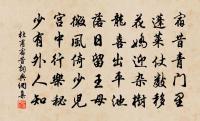 宿昔青門里
蓬萊仗數移
花嬌迎雜樹
龍喜出平池
落日留王母
微風倚少兒
宮中行樂秘
少有外人知
杜甫宿昔詞典網集